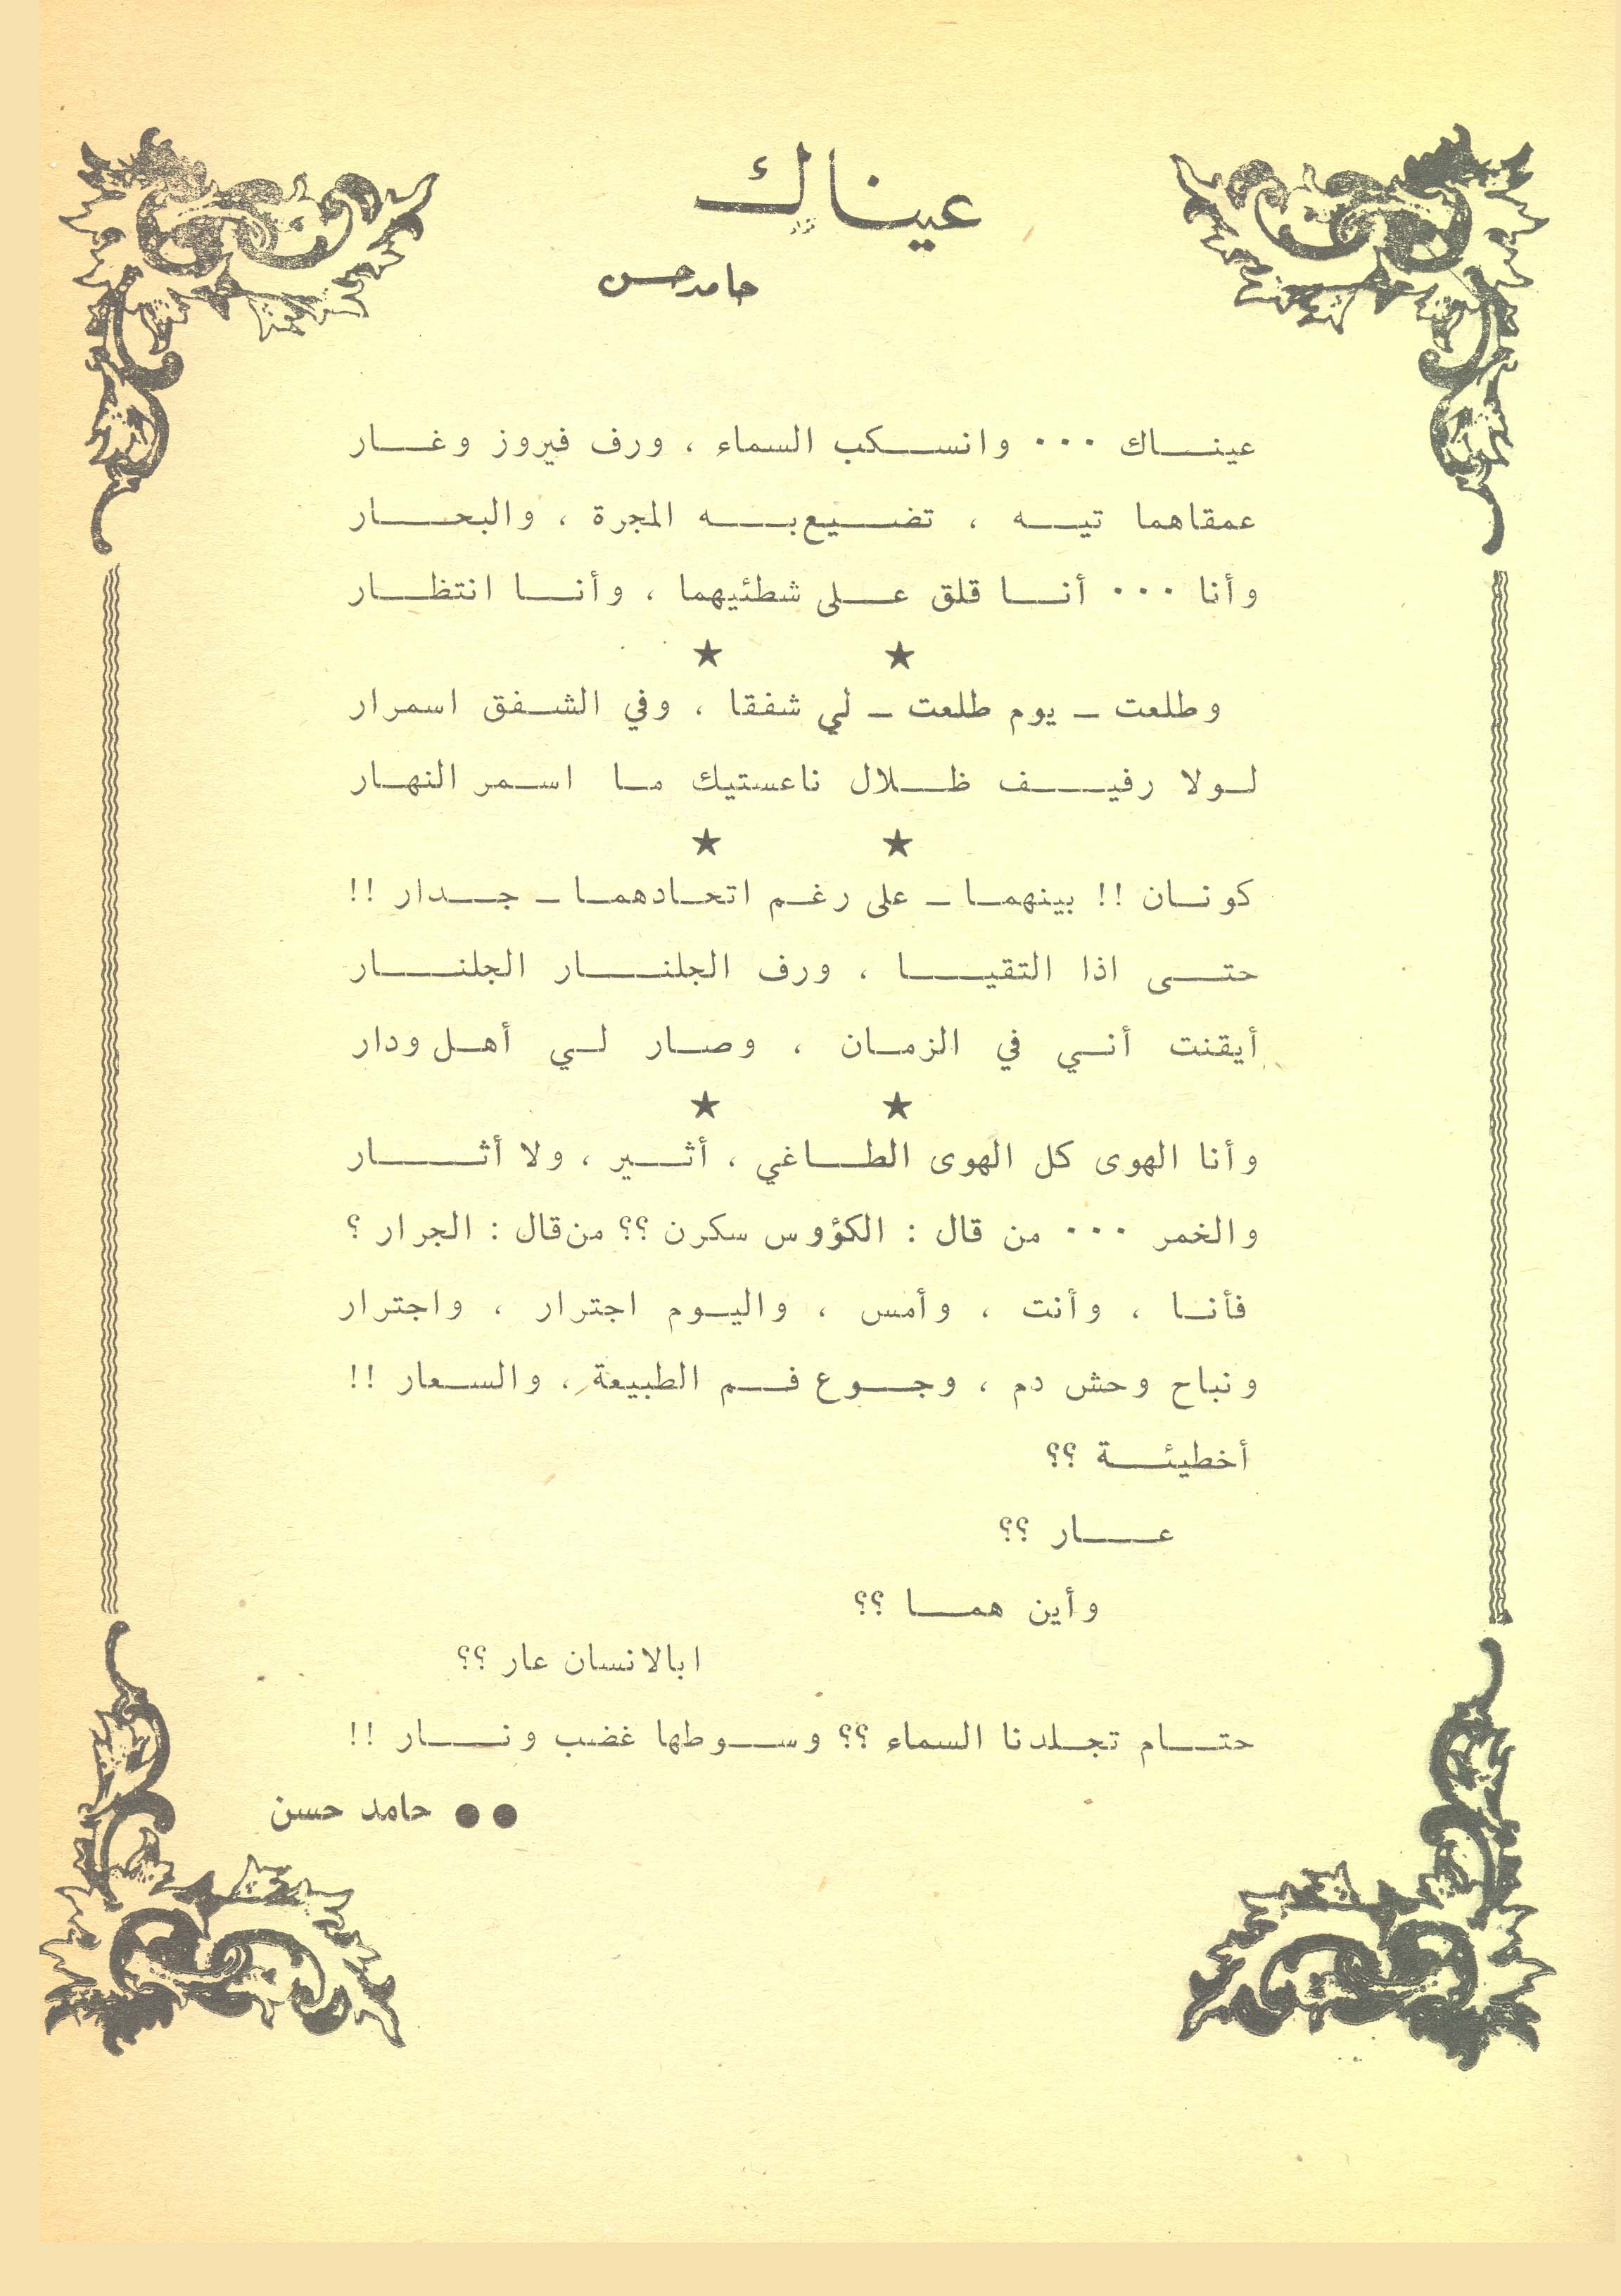 عيناك
حامد حسن
عينــاك ... وانســكب السماء ، ورف فيروز وغــار
عمقاهما تيــه ، تضــيع بــه المجرة ، والبحــار
وأنا ... أنــا قلق عــلى شطئيهما ، وأنــا انتظــار
★ ★
وطلعت ــ يوم طلعت ــ لي شفقا ، وفي الشــفق اسمرار
لــولا رفيــف ظــلال ناعستيك مــا اســمر النهــار
★ ★
كونــان !! بينهمــا ــ على رغــم اتحــادهمــا ــ جــدار !!
حتــى اذا التقيــا ، ورف الجلنــار الجلنــار
أيقنت أنــي في الزمــان ، وصــار لــي أهــل ودار
★ ★
وأنا الهوى كل الهوى الطــاغي ، أثــير ، ولا أثــار
والخمر ... من قال : الكؤوس سكرن ؟؟ من قال : الجرار ؟
فأنــا ، وأنت ، وأمس ، واليــوم اجترار ، واجترار
ونباح وحش دم ، وجــوع فــم الطبيعة ، والســعار !!
أخطيئــة ؟؟
عــار ؟؟
وأين همــا ؟؟
ابالانسان عار ؟؟
حتــام تجــلدنا السماء ؟؟ وســوطها غضب ونــار !!
●● حامد حسن